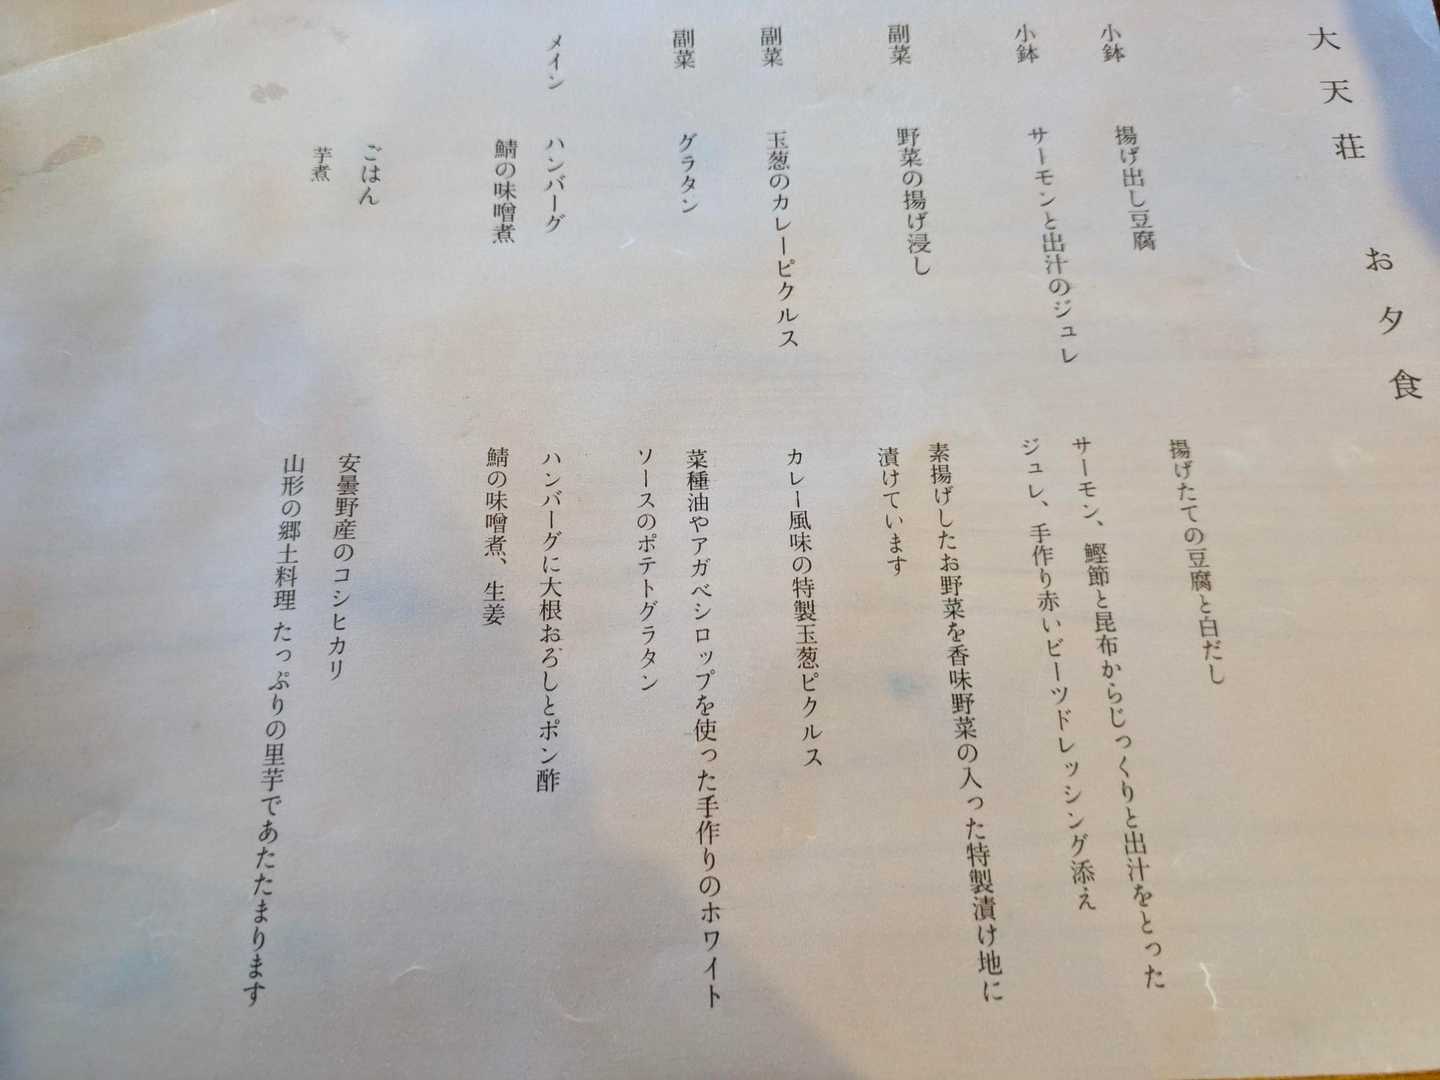 大天荘　お夕食
小鉢　揚げ出し豆腐　揚げたての豆腐と白だし
小鉢　サーモンと出汁のジュレ　サーモン、鰹節と昆布からじっくりと出汁をとった
ジュレ、手作り赤いビーツドレッシング添え
副菜　野菜の揚げ浸し　素揚げしたお野菜を香味野菜の入った特製漬け地に
漬けています
副菜　玉葱のカレーピクルス　カレー風味の特製玉葱ピクルス
副菜　グラタン　菜種油やアガベシロップを使った手作りのホワイト
ソースのポテトグラタン
メイン　ハンバーグ　ハンバーグに大根おろしとポン酢
鯖の味噌煮　鯖の味噌煮、生姜
ごはん　安曇野産のコシヒカリ
芋煮　山形の郷土料理 たっぷりの里芋であたたまります